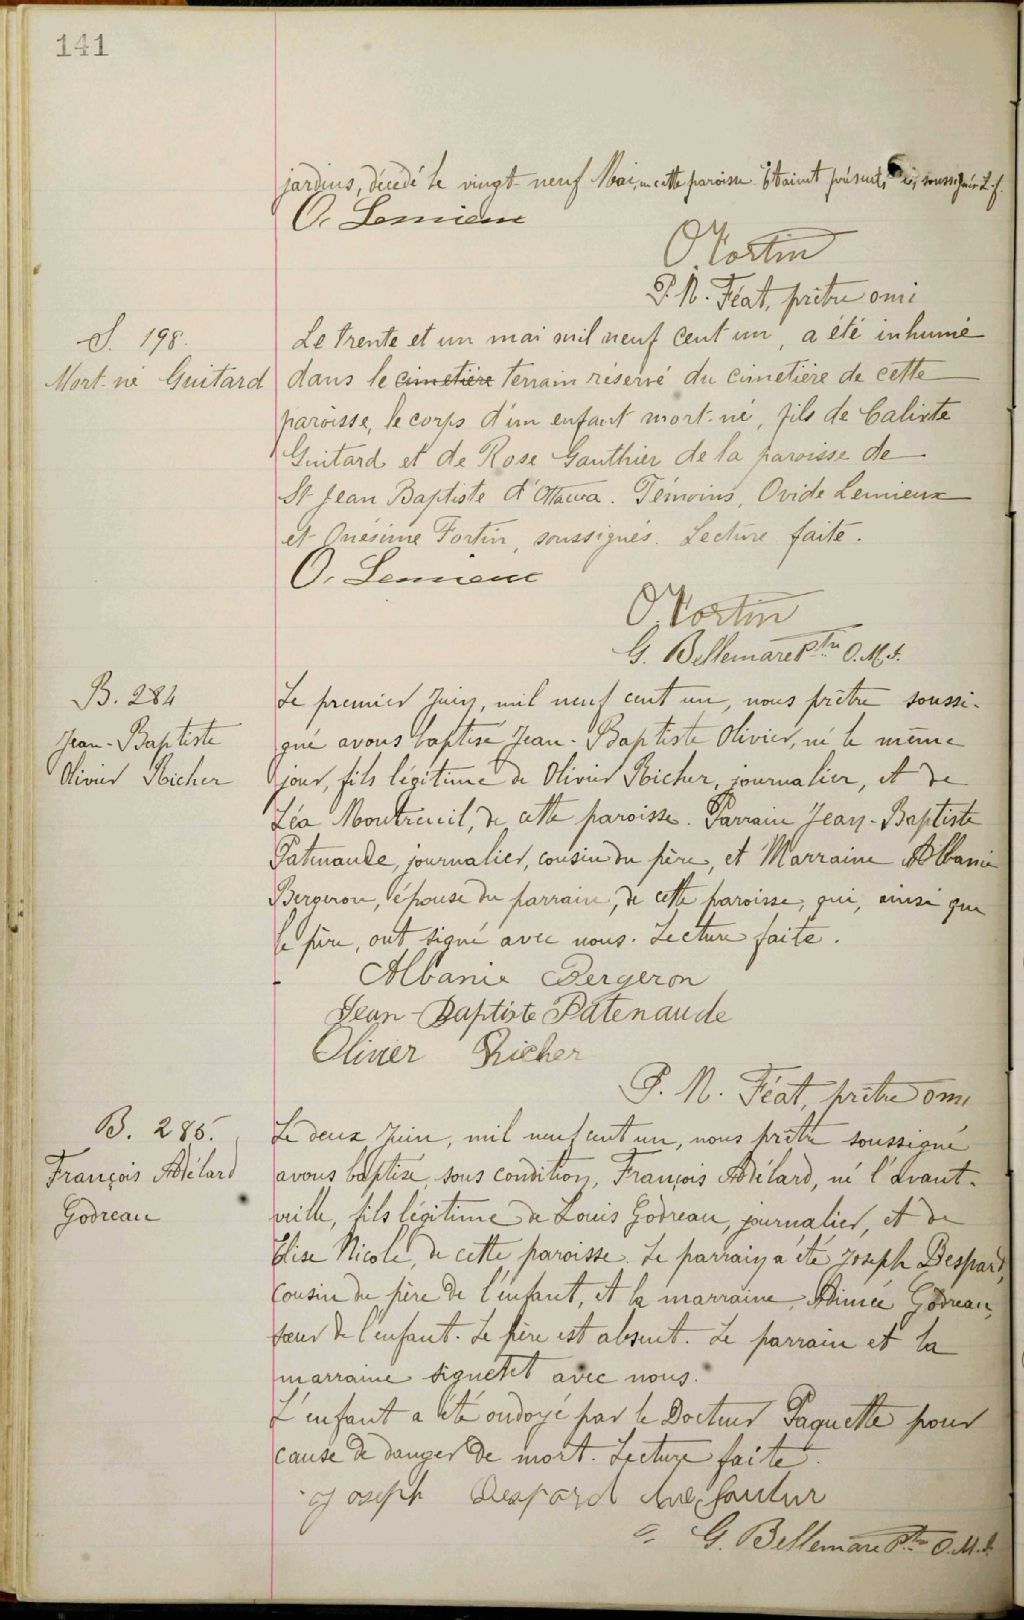 141
jardins, décédé le vingt-neuf Mai, en cette paroisse. Étaient présents, les soussignés L. f.
O. Lemieux
O. Fortin
P. N. Féat, prêtre omi
S. 198.
Mort-né Guitard
Le trente et un mai mil neuf cent un, a été inhumé
dans le cimetière terrain réservé du cimetière de cette
paroisse, le corps d'un enfant mort-né, fils de Calixte
Guitard et de Rose Gauthier de la paroisse de
St Jean Baptiste d'Ottawa. Témoins, Ovide Lemieux
et Onésime Fortin, soussignés. Lecture faite.
O. Lemieux
O. Fortin
G. Bellemare Ptre O.M.I.
B. 284
Jean-Baptiste
Olivier Richer
Le premier Juin, mil neuf cent un, nous prêtre soussi-
gné avons baptisé Jean-Baptiste Olivier, né le même
jour, fils légitime de Olivier Richer, journalier, et de
Léa Montreuil, de cette paroisse. Parrain Jean-Baptiste
Patenaude, journalier, cousin du père, et Marraine Albanie
Bergeron, épouse du parrain, de cette paroisse, qui, ainsi que
le père, ont signé avec nous. Lecture faite.
Albanie Bergeron
Jean-Baptiste Patenaude
Olivier Richer
P. N. Féat, prêtre omi
B. 285.
François Adélard
Godreau
Le deux Juin, mil neuf cent un, nous prêtre soussigné
avons baptisé, sous condition, François Adélard, né l'avant-
veille, fils légitime de Louis Godreau, journalier, et de
Elise Nicole, de cette paroisse. Le parrain a été Joseph Despard,
cousin du père de l'enfant, et la marraine, Aimée Godreau,
sœur de l'enfant. Le père est absent. Le parrain et la
marraine signent avec nous.
L'enfant a été ondoyé par le Docteur Paquette pour
cause de danger de mort. Lecture faite.
Joseph Despard
G. Bellemare Ptre O.M.I.